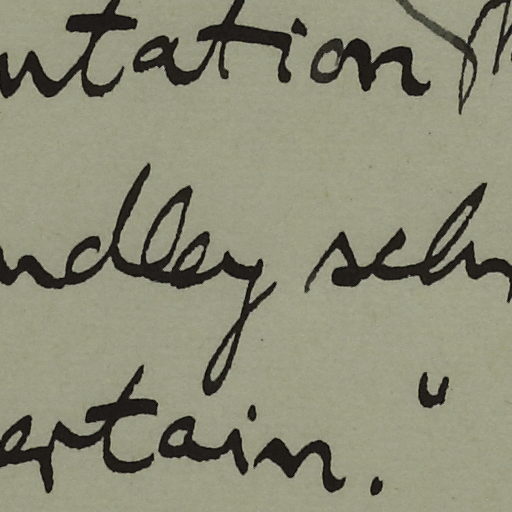 utation
ndley sch
ertain."